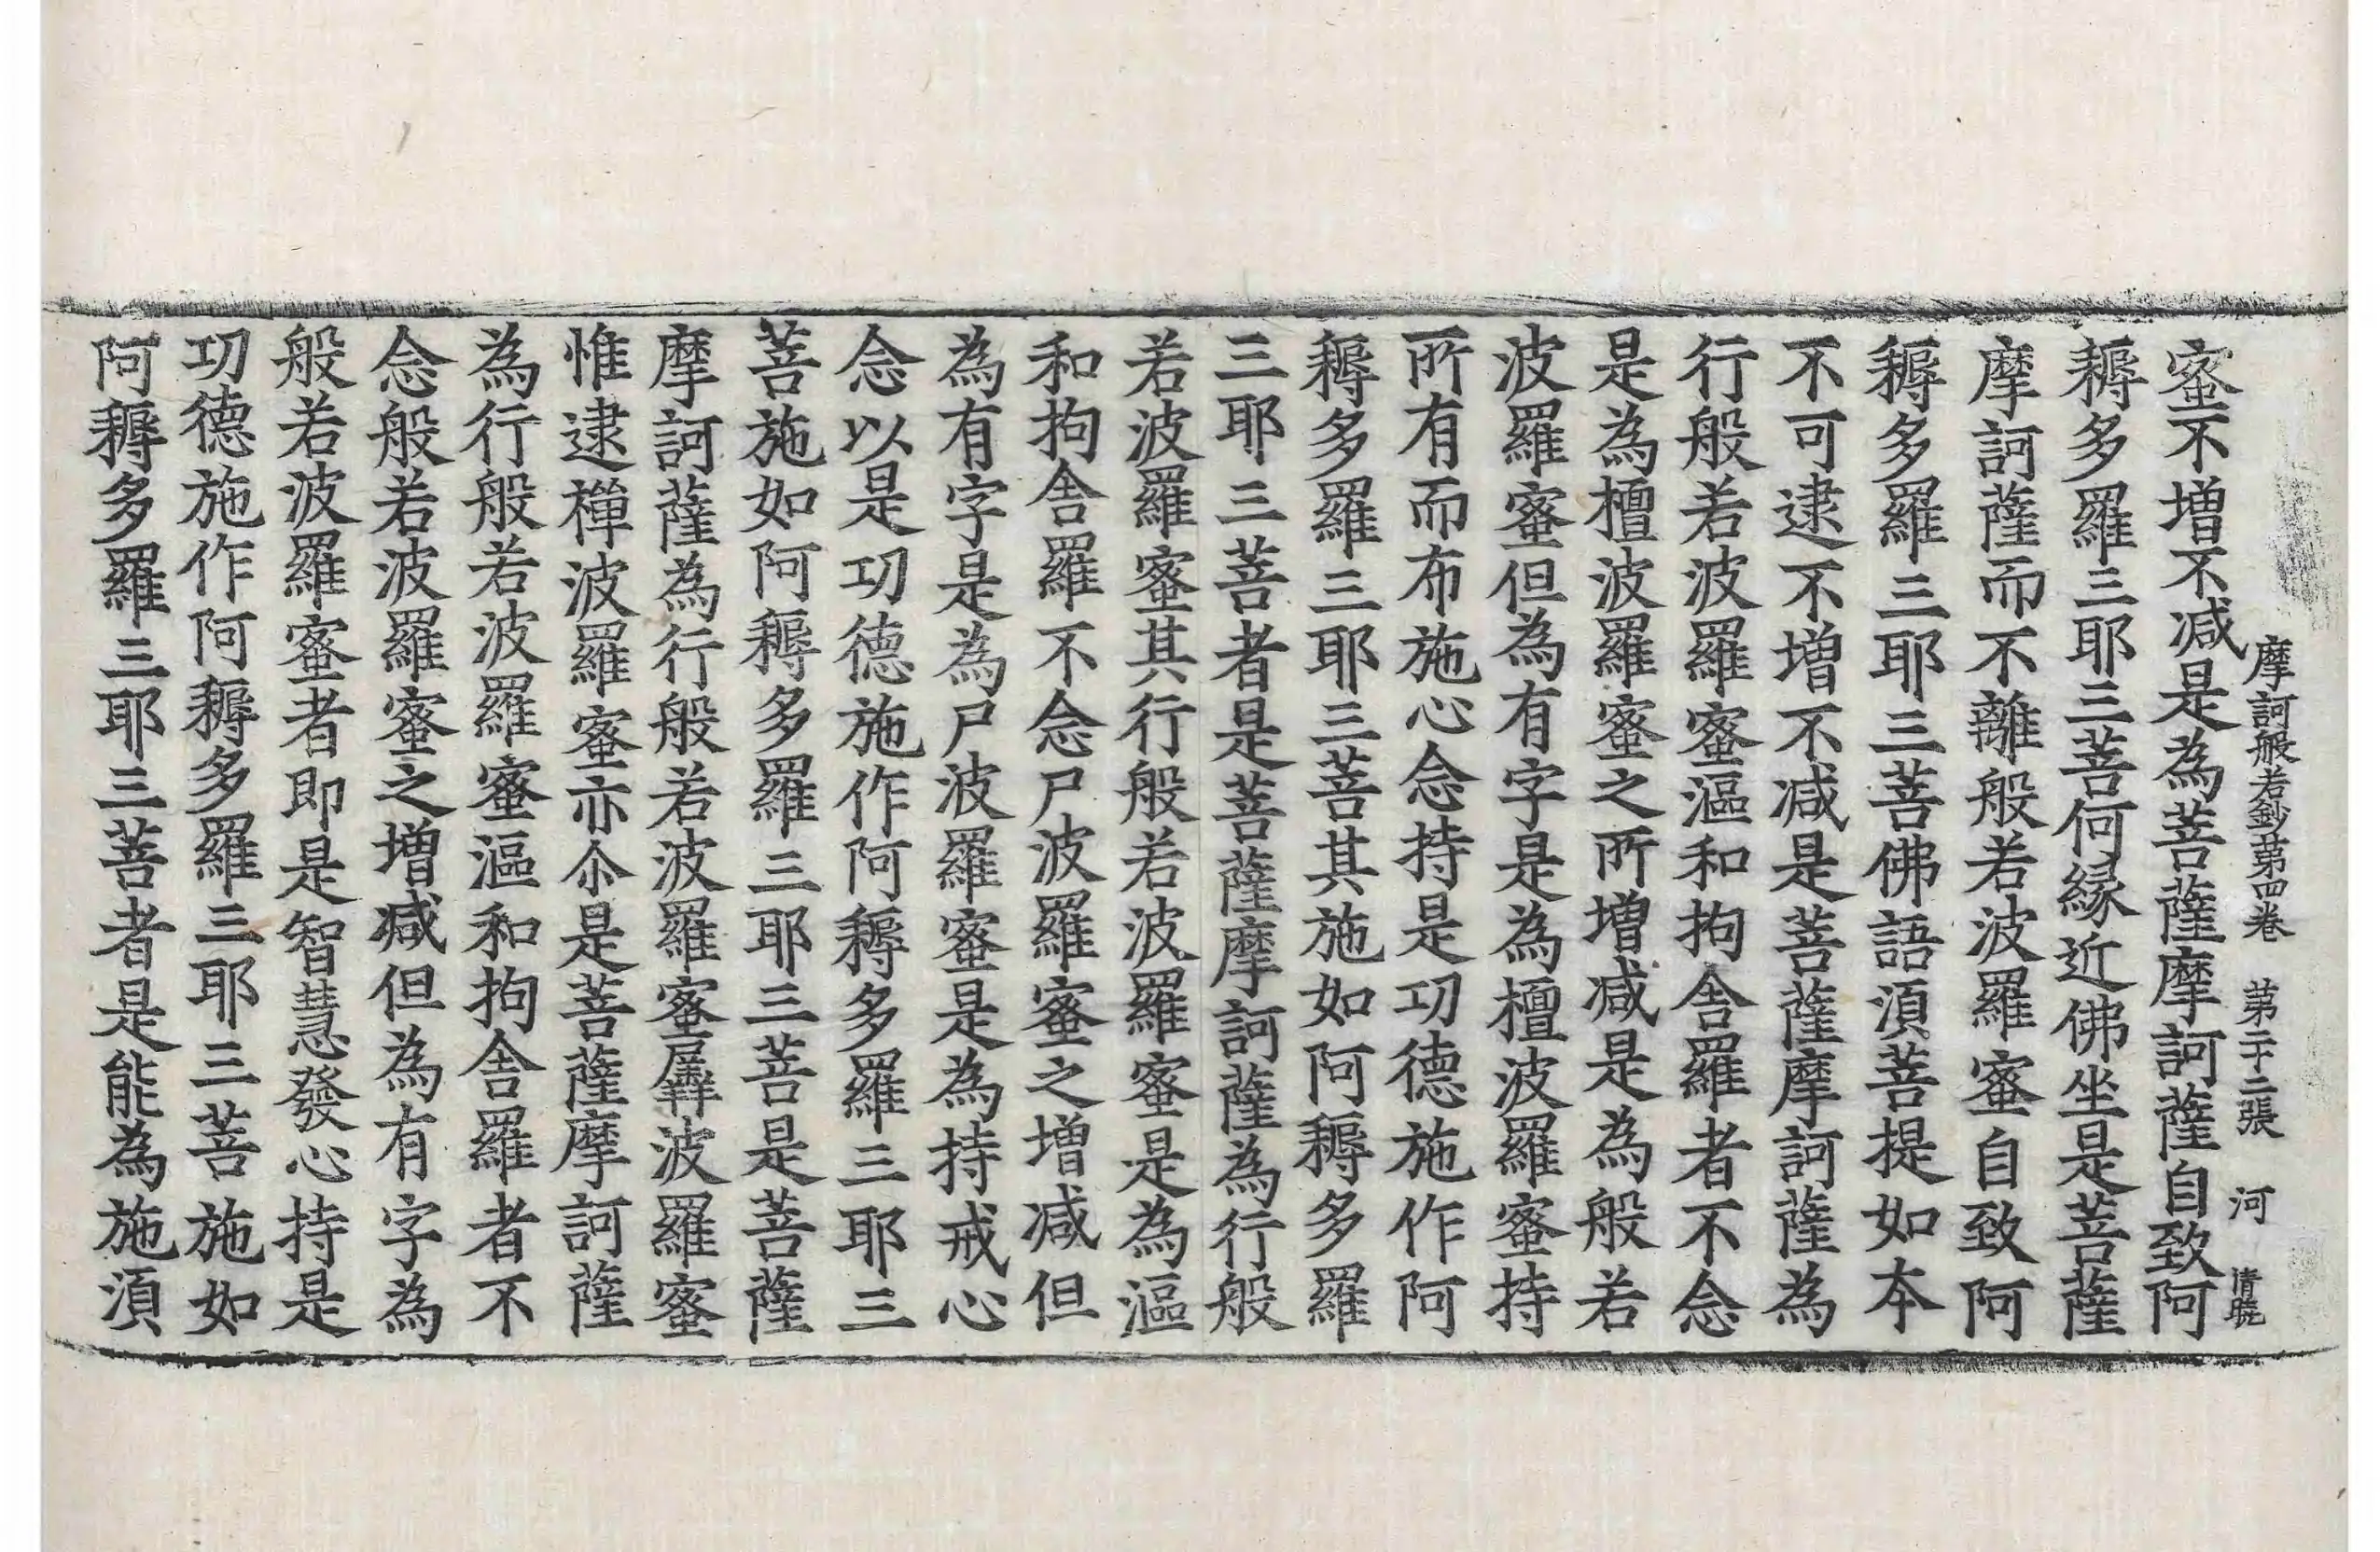 摩訶般若鈔第四卷　第二十二張　河　清曉
蜜不増不减是為菩薩摩訶薩自致阿
耨多羅三耶三菩何縁近佛坐是菩薩
摩訶薩而不離般若波羅蜜自致阿
耨多羅三耶三菩佛語湏菩提如本
不可逮不増不减是菩薩摩訶薩為
行般若波羅蜜漚和拘舍羅者不念
是為檀波羅蜜之所増减是為般若
波羅蜜但為有字是為檀波羅蜜持
所有而布施心念持是功德施作阿
耨多羅三耶三菩其施如阿耨多羅
三耶三菩者是菩薩摩訶薩為行般
若波羅蜜其行般若波羅蜜是為漚
和拘舍羅不念尸波羅蜜之増减但
為有字是為尸波羅蜜是為持戒心
念以是功德施作阿耨多羅三耶三
菩施如阿耨多羅三耶三菩是菩薩
摩訶薩為行般若波羅蜜羼波羅蜜
惟逮禪波羅蜜亦尒是菩薩摩訶薩
為行般若波羅蜜漚和拘舍羅者不
念般若波羅蜜之増减但為有字為
般若波羅蜜者即是智慧發心持是
功德施作阿耨多羅三耶三菩施如
阿耨多羅三耶三菩者是能為施湏